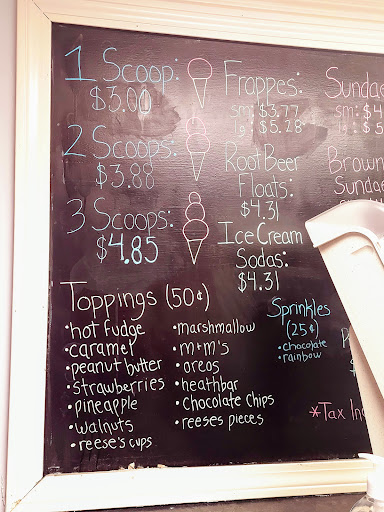 1 Scoop:
$3.00
2 Scoops:
$3.88
3 Scoops:
$4.85
Frappes:
sm: $3.77
lg: $5.28
Root Beer
Floats:
$4.31
Ice Cream
Sodas:
$4.31
Sundae
sm: $4
lg: $5
Brown
Sundae
Toppings (50¢)
•hot fudge
•caramel
•peanut butter
•strawberries
•pineapple
•walnuts
•reese's cups
•marshmallow
•m+m's
•oreos
•heathbar
•chocolate chips
•reeses pieces
Sprinkles
(25¢)
•chocolate
•rainbow
*Tax Inc